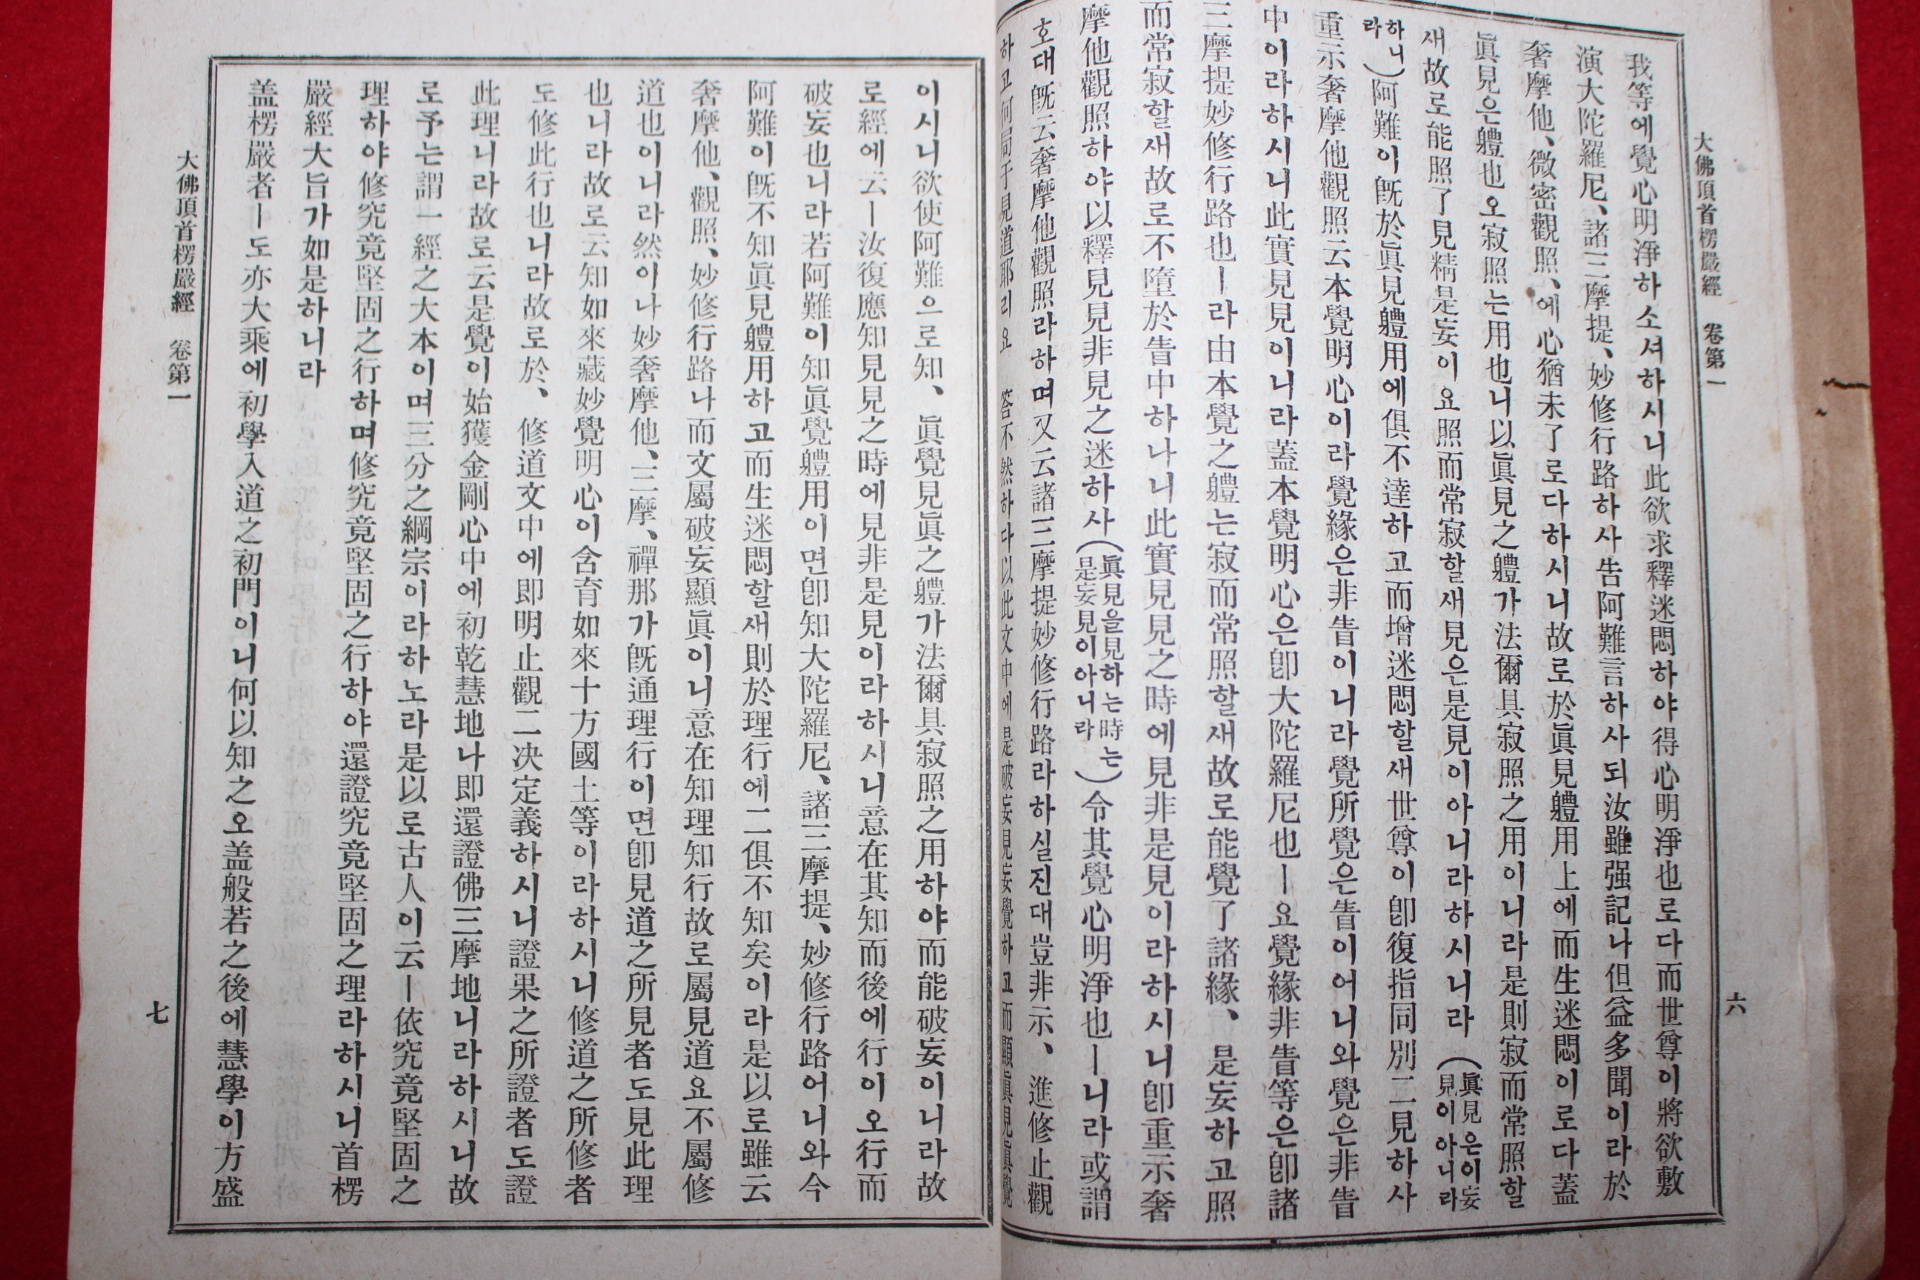 大佛頂首楞嚴經 卷第一
六
我等에覺心明淨하소셔하시니此欲求釋迷悶하야得心明淨也로다而世尊이將欲敷
演大陀羅尼、諸三摩提、妙修行路하사告阿難言하사되汝雖强記나但益多聞이라於
奢摩他、微密觀照、에心猶未了로다하시니故로於眞見軆用上에而生迷悶이로다蓋
眞見은軆也오寂照는用也니以眞見之軆가法爾具寂照之用이니라是則寂而常照할
새故로能照了見精是妄이요照而常寂할새見은是見이아니라하시니라(眞見은이妄見이아니라
하니라)阿難이旣於眞見軆用에俱不達하고而增迷悶할새世尊이卽復指同別二見하사
重示奢摩他觀照云本覺明心이라覺緣은非眚이니라覺所覺은眚이어니와覺은非眚
中이라하시니此實見見이니라蓋本覺明心은卽大陀羅尼也ㅣ요覺緣非眚等은卽諸
三摩提妙修行路也ㅣ라由本覺之軆는寂而常照할새故로能覺了諸緣、是妄、하고照
而常寂할새故로不墮於眚中하나니此實見見之時에見非是見이라하시니卽重示奢
摩他觀照하야以釋見見非見之迷하사(眞見을見하는時는是妄見이아니라)令其覺心明淨也ㅣ니라或謂
호대旣云奢摩他觀照라하며又云諸三摩提妙修行路라하실진대豈非示、進修止觀
하고何局于見道耶리요 答不然하다以此文中에是破妄見妄覺하고而顯眞見眞覺
이시니欲使阿難으로知、眞覺見眞之軆가法爾具寂照之用하야而能破妄이니라故
로經에云ㅣ汝復應知見見之時에見非是見이라하시니意在其知而後에行이오行而
破妄也니라若阿難이知眞覺軆用이면卽知大陀羅尼、諸三摩提、妙修行路어니와今
阿難이旣不知眞見軆用하고而生迷悶할새則於理行에二俱不知矣이라是以로雖云
奢摩他、觀照、妙修行路나而文屬破妄顯眞이니意在知理知行故로屬見道요不屬修
道也이니라然이나妙奢摩他、三摩、禪那가旣通理行이면卽見道之所見者도見此理
也니라故로云知如來藏妙覺明心이含育如來十方國土等이라하시니修道之所修者
도修此行也니라故로於、修道文中에卽明止觀二決定義하시니證果之所證者도證
此理니라故로云是覺이始獲金剛心中에初乾慧地나即還證佛三摩地니라하시니故
로予는謂一經之大本이며三分之綱宗이라하노라是以로古人이云ㅣ依究竟堅固之
理하야修究竟堅固之行하며修究竟堅固之行하야還證究竟堅固之理라하시니首楞
嚴經大旨가如是하니라
盖楞嚴者ㅣ도亦大乘에初學入道之初門이니何以知之오盖般若之後에慧學이方盛
大佛頂首楞嚴經 卷第一
七